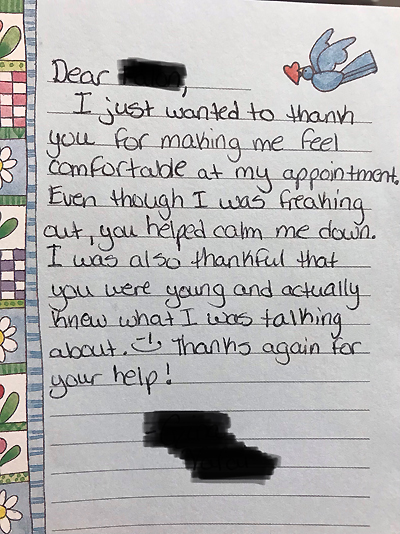 Dear ,
I just wanted to thank
you for making me feel
comfortable at my appointment.
Even though I was freaking
out, you helped calm me down.
I was also thankful that
you were young and actually
knew what I was talking
about. Thanks again for
your help!